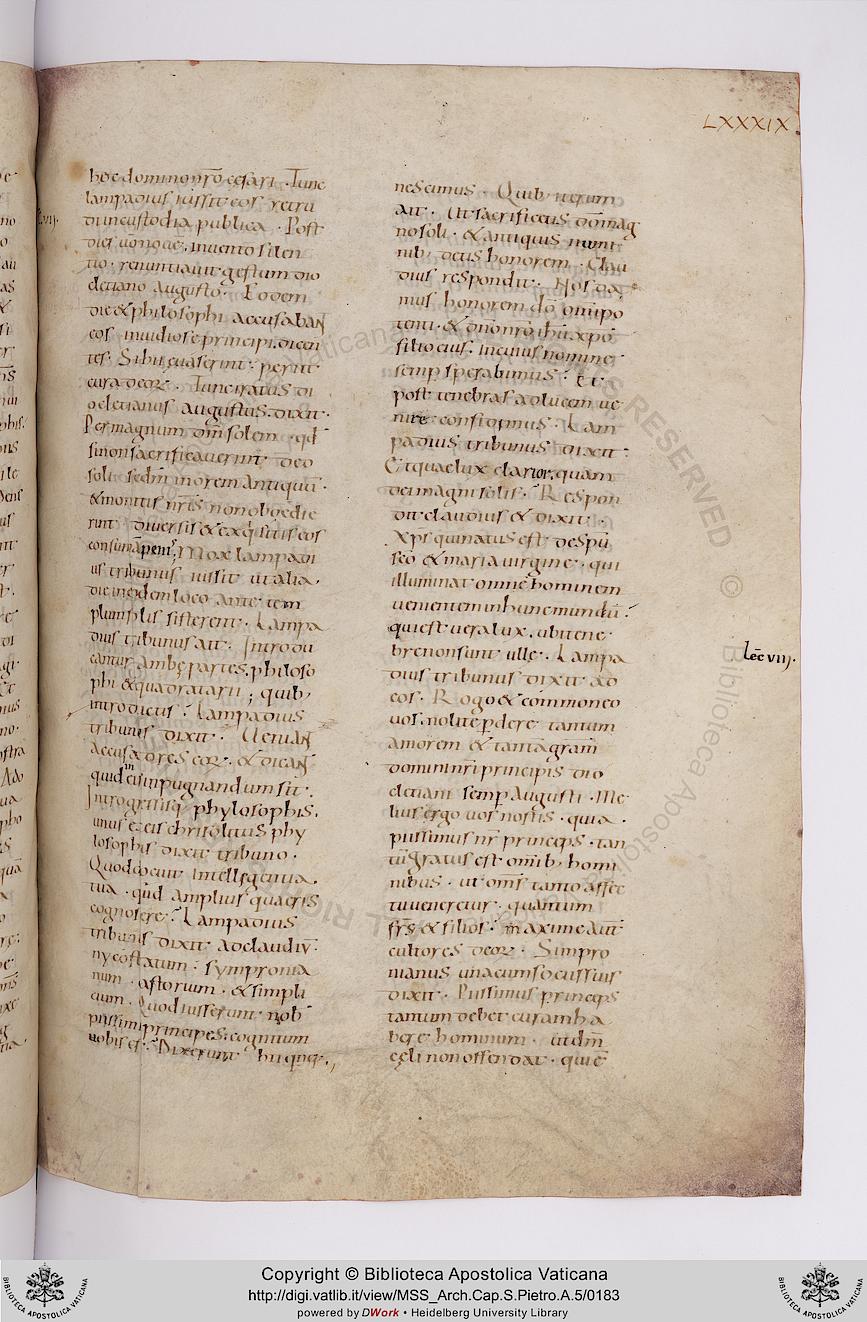 LXXXIX
hoc domino nr̄o cesari. Tunc
lampadius iussit eos retru
di in custodia publica. Post
dies uō noue, inuento silen
tio. renuntiauit gestum dio
cletiano augusto. Eodem
die & philosophi accusaban̄
eos inuidiose principi. dicen
tes. Si hii euaserint. periit
cura deoꝝ. Tunc iratus di
ocletianus augustus. dixit.
Per magnum dm̄ solem. qd̄
si non sacrificauerint deo
soli sedm̄ morem antiquū.
& monitis nr̄is non oboedie
rint diuersis & exq̇sitis eos
consumā penis. Mox lampadi
us tribunus iussit ut alia
die in eodem loco ante tem
plum solis sisterent. Lampa
dius tribunus ait. Introdu
cantur ambę partes. philoso
phi & quadratarii; quib;
introductis. Lampadius
tribunus dixit. Ueniaɴ̄
accusatores eoꝝ. & dicaɴ̄
quid in eis inpugnandum sit.
Introgressisq; phylosophis.
unus ex eis chrisolitus phy
losophis dixit tribuno.
Quod docuit intellegentia
tua. quid amplius quaeris
cognoscere. Lampadius
tribunus dixit ad claudiū.
nycostatum. symproniā
num. astorum. & simpli
cium. Quod iusserunt nob̄
piissimi principes. cognitum
uobis ē. Dixerunt hii quinq;.
nescimus. Quib; iterum
ait. Ut sacrificetis dō mag
no soli. & antiquis numi
nib; detis honorem. Clau
dius respondit. Nos da
mus honorem dō omipo
tenti. & dn̄o nr̄o ihū xp̄o
filio eius. in cuius nomine
semp sperabimus. Et
post tenebras ad lucem ue
nire confidimus. Lam
padius tribunus dixit.
Et quae lux clarior. quam
dei magni solis. Respon
dit claudius & dixit.
Xps qui natus est de sp̄u
sco & maria uirgine. qui
illuminat omnē hominem
uenientem in hunc mundū.
qui est uera lux. ubi tene
bre non sunt ulle. Lampa
dius tribunus dixit ad
eos. Rogo & commoneo
uos. nolite pdere tantum
amorem & tantā gram̄
domini nr̄i principis dio
cletiani semp augusti. Me
lius ergo uos nostis. quia
piissimus nr̄ princeps. tan
tū gratus est omib; homi
nibus. ut om̄s tanto affec
tu ueneretur. quantum
fr̄s & filios. maxime aut̄
cultores deoꝝ. Simpro
nianus una cum socus suis
dixit. Piissimus princeps
tantum debet curam ha
bere hominum. ut dm̄
cęli non offendat. qui ē
lec̄ viij.
Copyright © Biblioteca Apostolica Vaticana
http://digi.vatlib.it/view/MSS_Arch.Cap.S.Pietro.A.5/0183
powered by DWork • Heidelberg University Library